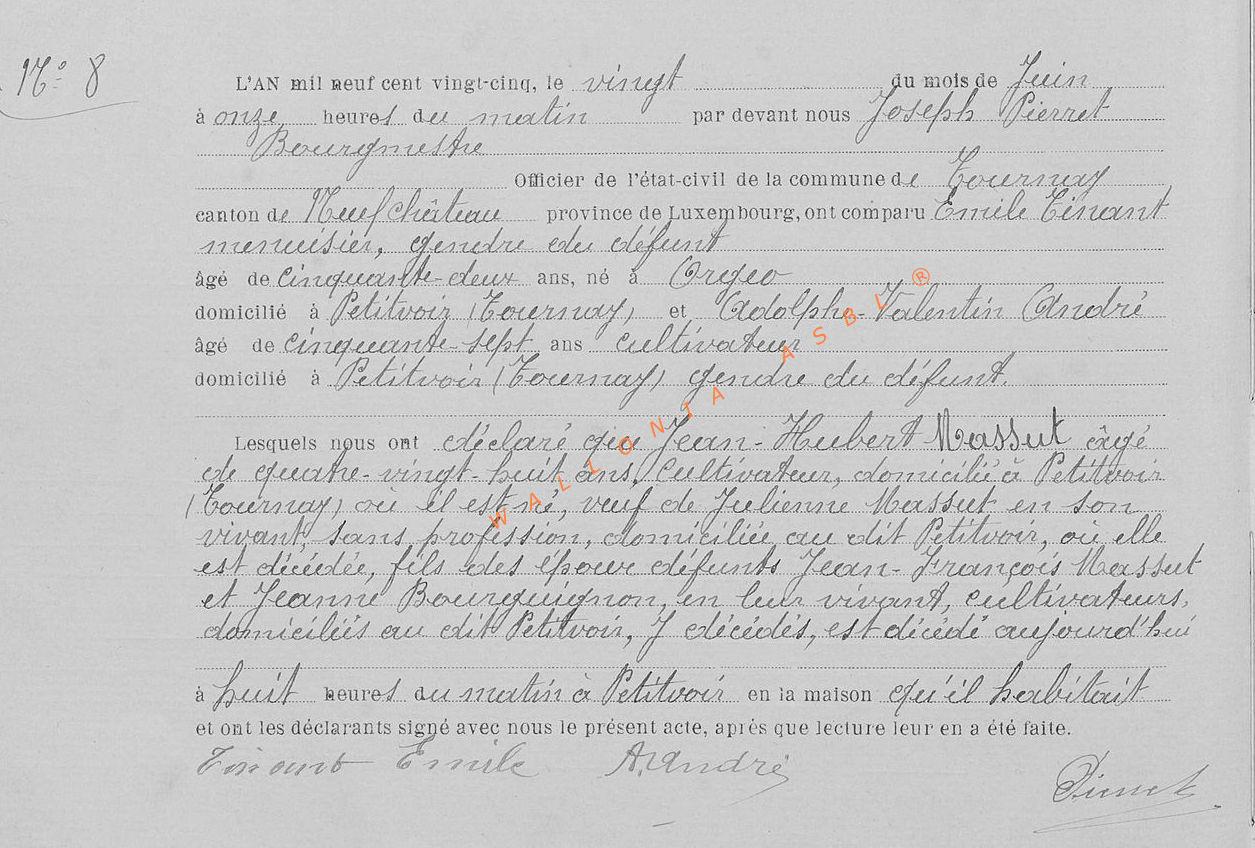 N° 8
L'AN mil neuf cent vingt-cinq, le vingt du mois de Juin
à onze heures du matin par devant nous Joseph Pierret
Bourgmestre
Officier de l'état-civil de la commune de Tournay
canton de Neufchâteau province de Luxembourg, ont comparu Emile Tinant
menuisier, gendre du défunt
âgé de cinquante-deux ans, né à Orgeo
domicilié à Petitvoir (Tournay) et Adolphe-Valentin André
âgé de cinquante-sept ans cultivateur
domicilié à Petitvoir (Tournay) gendre du défunt.
Lesquels nous ont déclaré que Jean-Hubert Massut âgé
de quatre-vingt-huit ans, cultivateur, domicilié à Petitvoir
(Tournay) où il est né, veuf de Julienne Massut en son
vivant, sans profession, domiciliée au dit Petitvoir, où elle
est décédée, fils des époux défunts Jean-François Massut
et Jeanne Bourguignon, en leur vivant, cultivateurs,
domiciliés au dit Petitvoir, y décédés, est décédé aujourd'hui
à huit heures du matin à Petitvoir en la maison qu'il habitait
et ont les déclarants signé avec nous le présent acte, après que lecture leur en a été faite.
Tinant Emile A. André
Pierret
WALLONIA ASBL ®